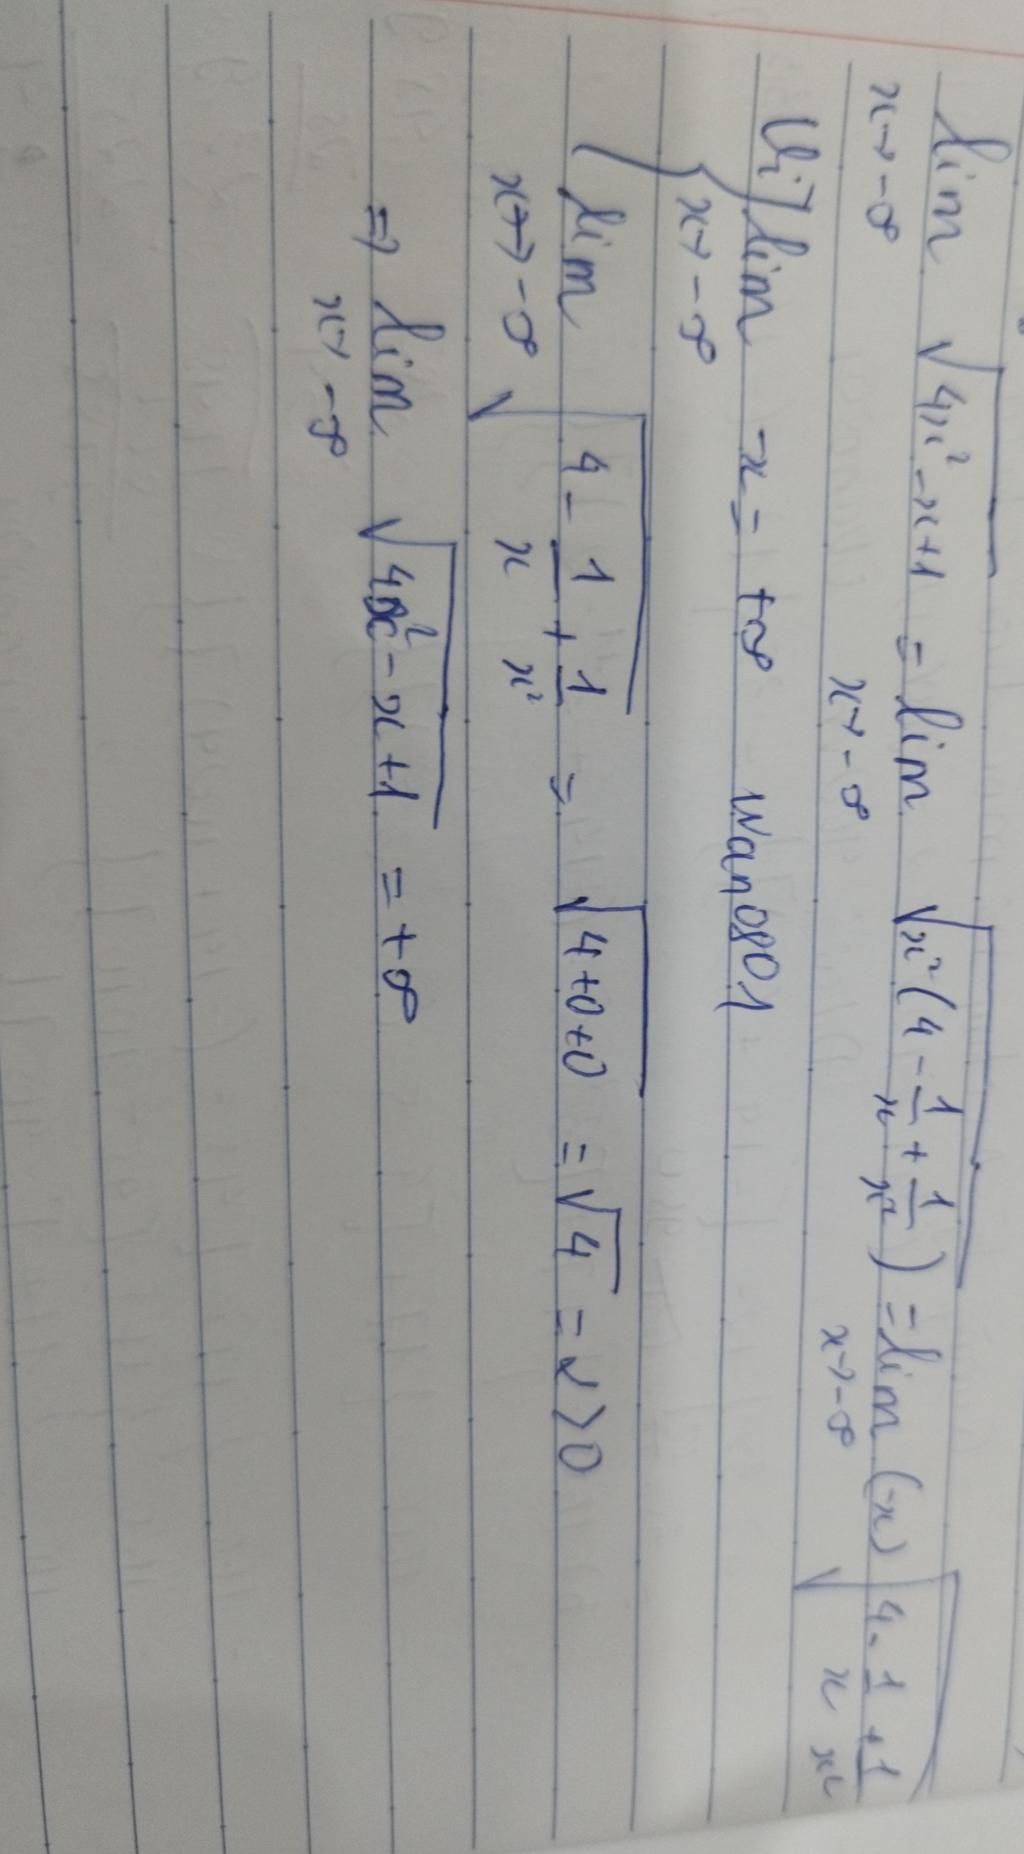 lim √(4x² - x + 1) = lim √(x²(4 - 1/x + 1/x²)) = lim (-x) √(4 - 1/x + 1/x²)
x→-∞ x→-∞ x→-∞
Vì { lim -x = +∞ wan0801
x→-∞
lim √(4 - 1/x + 1/x²) = √(4+0+0) = √4 = 2 > 0
x→-∞
⇒ lim √(4x² - x + 1) = +∞
x→-∞